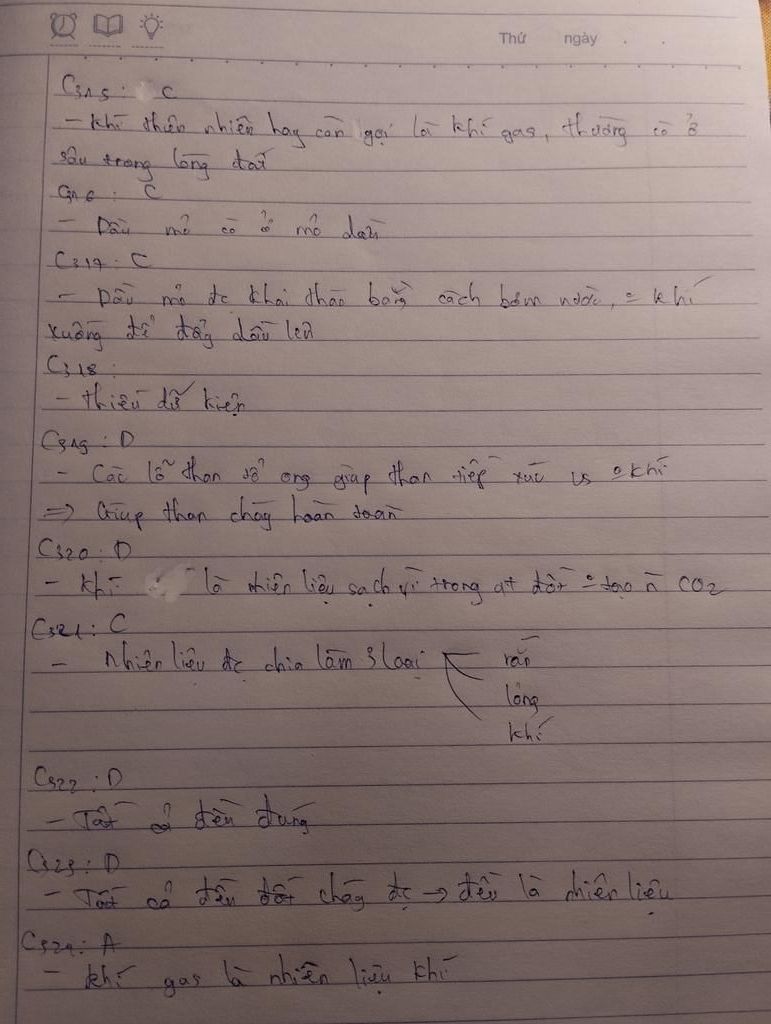 Thứ ngày . .
C315: C
- Khí thiên nhiên hay còn gọi là khí gas, thường có ở
sâu trong lòng đất
C316: C
- Dầu mỏ có ở mỏ dầu
C317: C
- Dầu mỏ đc khai thác bằng cách bơm nước, khí
xuống để đẩy dầu lên
C318:
- thiếu dữ kiện
C319: D
- Các lỗ than tổ ong giúp than tiếp xúc vs khí
=> Giúp than cháy hoàn toàn
C320: D
- Khí là nhiên liệu sạch vì trong qt đốt tạo n CO2
C321: C
- Nhiên liệu đc chia làm 3 loại rắn
lỏng
khí
C322: D
- Tất cả đều đúng
C323: D
- Tất cả đều đốt cháy đc → đều là nhiên liệu
C324: A
- khí gas là nhiên liệu khí